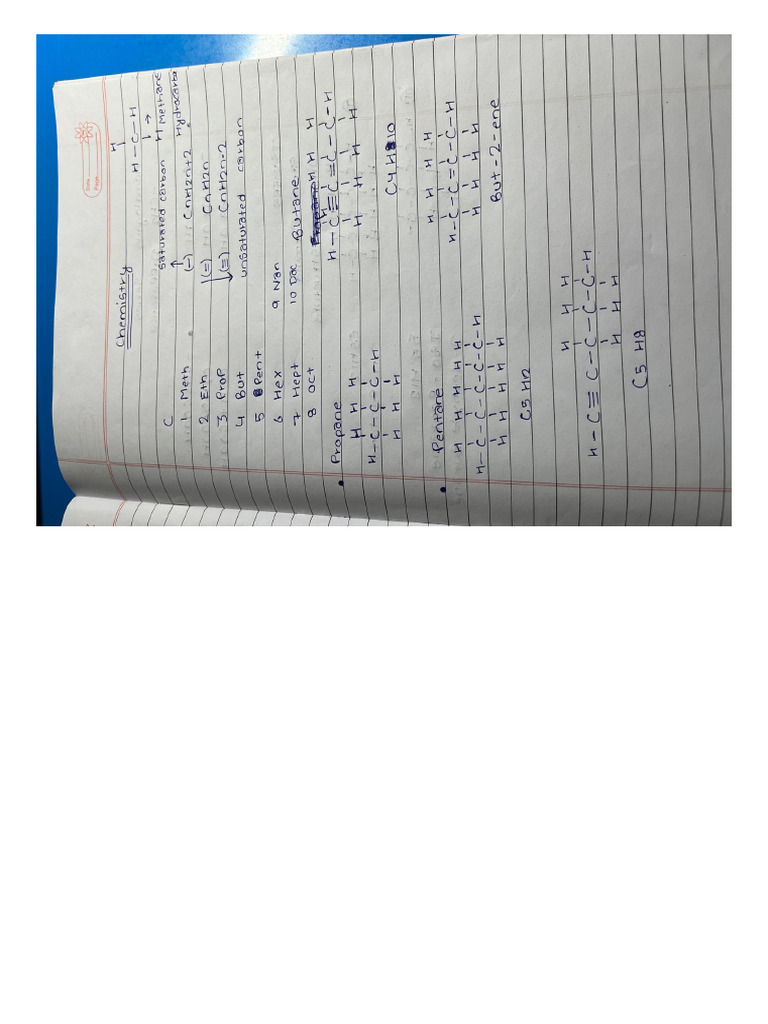 Date
Page
Chemistry
H
H-C-H
H Methane
C saturated carbon Hydrocarbo
1 Meth (-) CnH2n+2
2 Eth (=) CnH2n
3 Prop (≡) CnH2n-2
4 But unsaturated carbon
5 Pent
6 Hex 9 Nan
7 Hept 10 Dac Butane
8 oct
Propane
H H H
H-C-C-C-H
H H H
C4H10
Pentane
H H H H H
H-C-C-C-C-C-H
H H H H H
C5H12
H H H H
H-C-C=C-C-H
H H H H
But-2-ene
H H H
H-C≡C-C-C-C-H
H H H
C5 H8